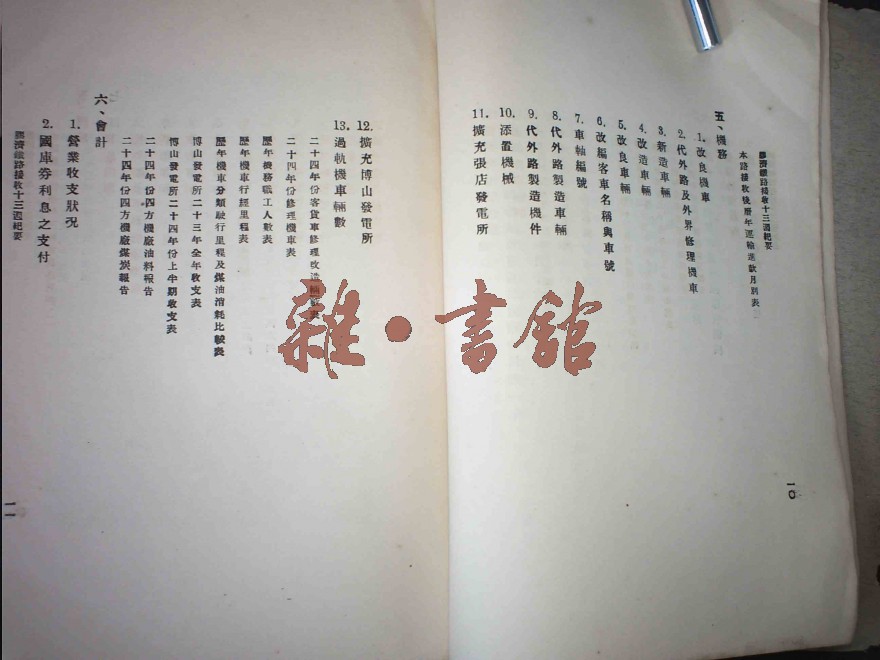 膠濟鐵路接收十三週紀要
本路接收後歷年運輸進款月別表
五、機務
1. 改良機車
2. 代外路及外界修理機車
3. 新造車輛
4. 改造車輛
5. 改良車輛
6. 改編客車名稱與車號
7. 車軸編號
8. 代外路製造車輛
9. 代外路製造機件
10. 添置機械
11. 擴充張店發電所
一〇
12. 擴充博山發電所
13. 過軌機車輛數
二十四年份客貨車修理改造輛數表
二十四年份修理機車表
歷年機務職工人數表
歷年機車行經里程表
歷年機車分類駛行里程及煤油消耗比較表
博山發電所二十三年全年收支表
博山發電所二十四年份上半期收支表
二十四年份四方機廠油料報告
二十四年份四方機廠煤炭報告
六、會計
1. 營業收支狀況
2. 國庫券利息之支付
膠濟鐵路接收十三週紀要
一一
雜·書館